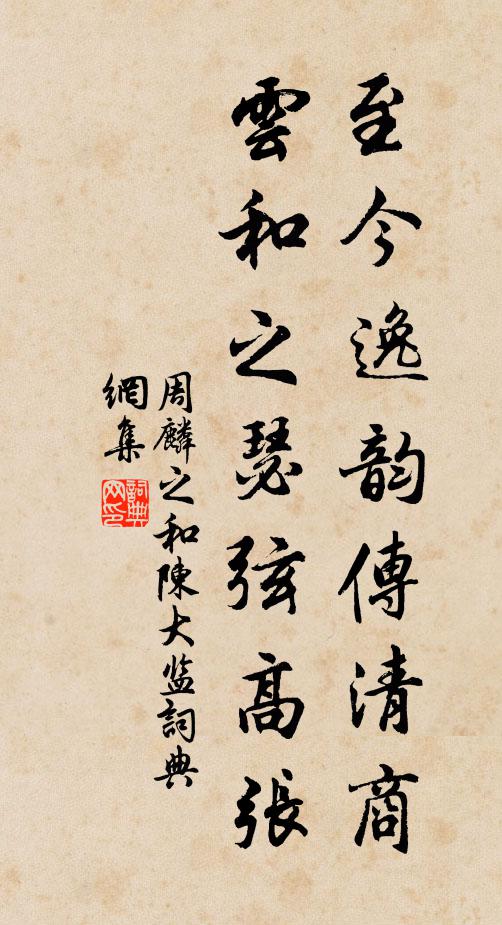 至今逸韵傳清商
雲和之瑟弦高張
周麟之和陳大监詞典
網集
詞典
网印